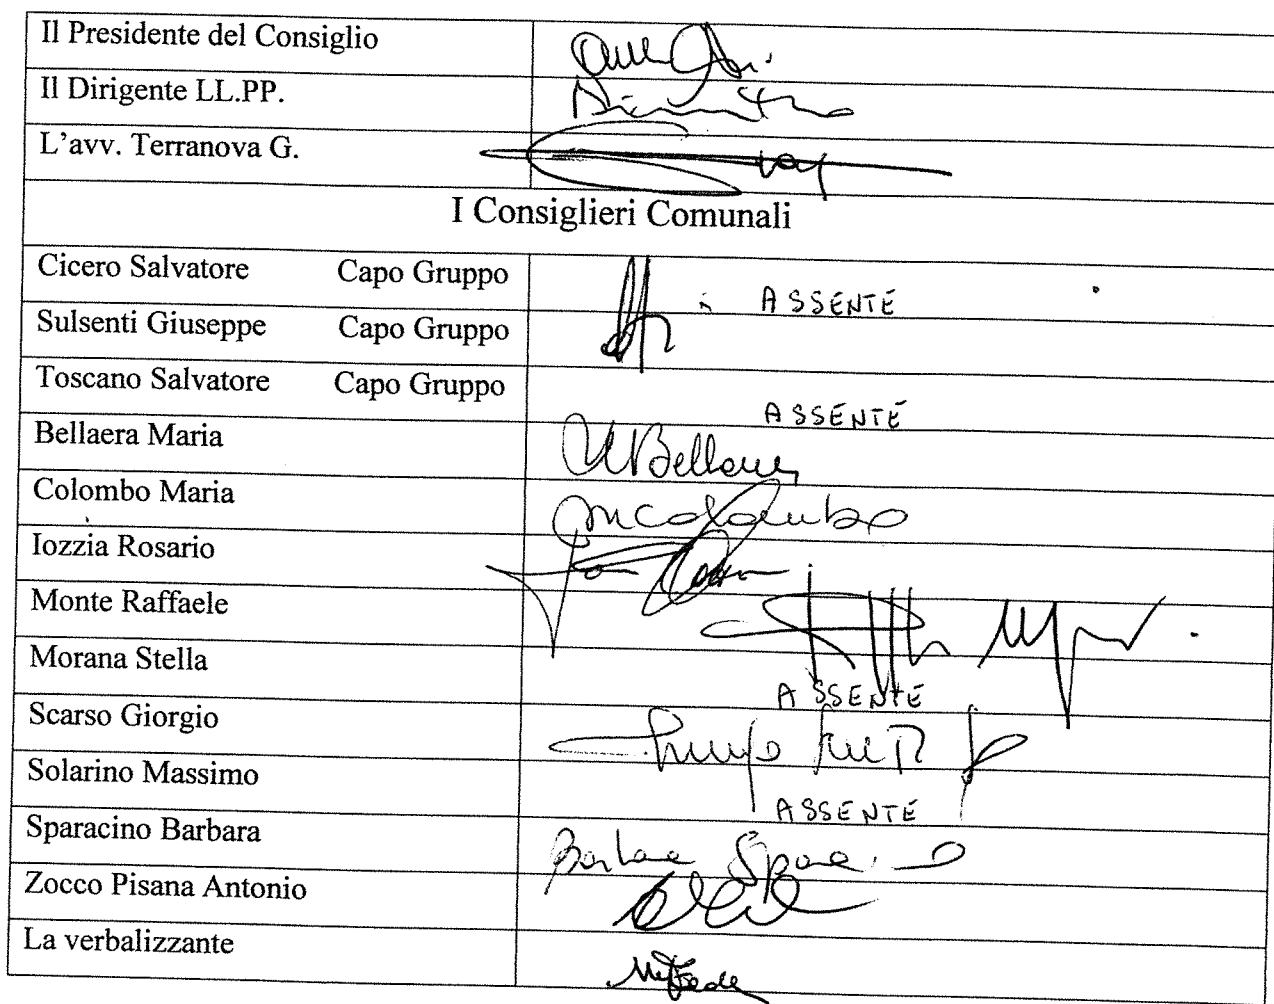 Il Presidente del Consiglio
Il Dirigente LL.PP.
L'avv. Terranova G.
I Consiglieri Comunali
Cicero Salvatore Capo Gruppo ASSENTE
Sulsenti Giuseppe Capo Gruppo
Toscano Salvatore Capo Gruppo ASSENTE
Bellaera Maria
Colombo Maria
Iozzia Rosario
Monte Raffaele
Morana Stella ASSENTE
Scarso Giorgio
Solarino Massimo ASSENTE
Sparacino Barbara
Zocco Pisana Antonio
La verbalizzante